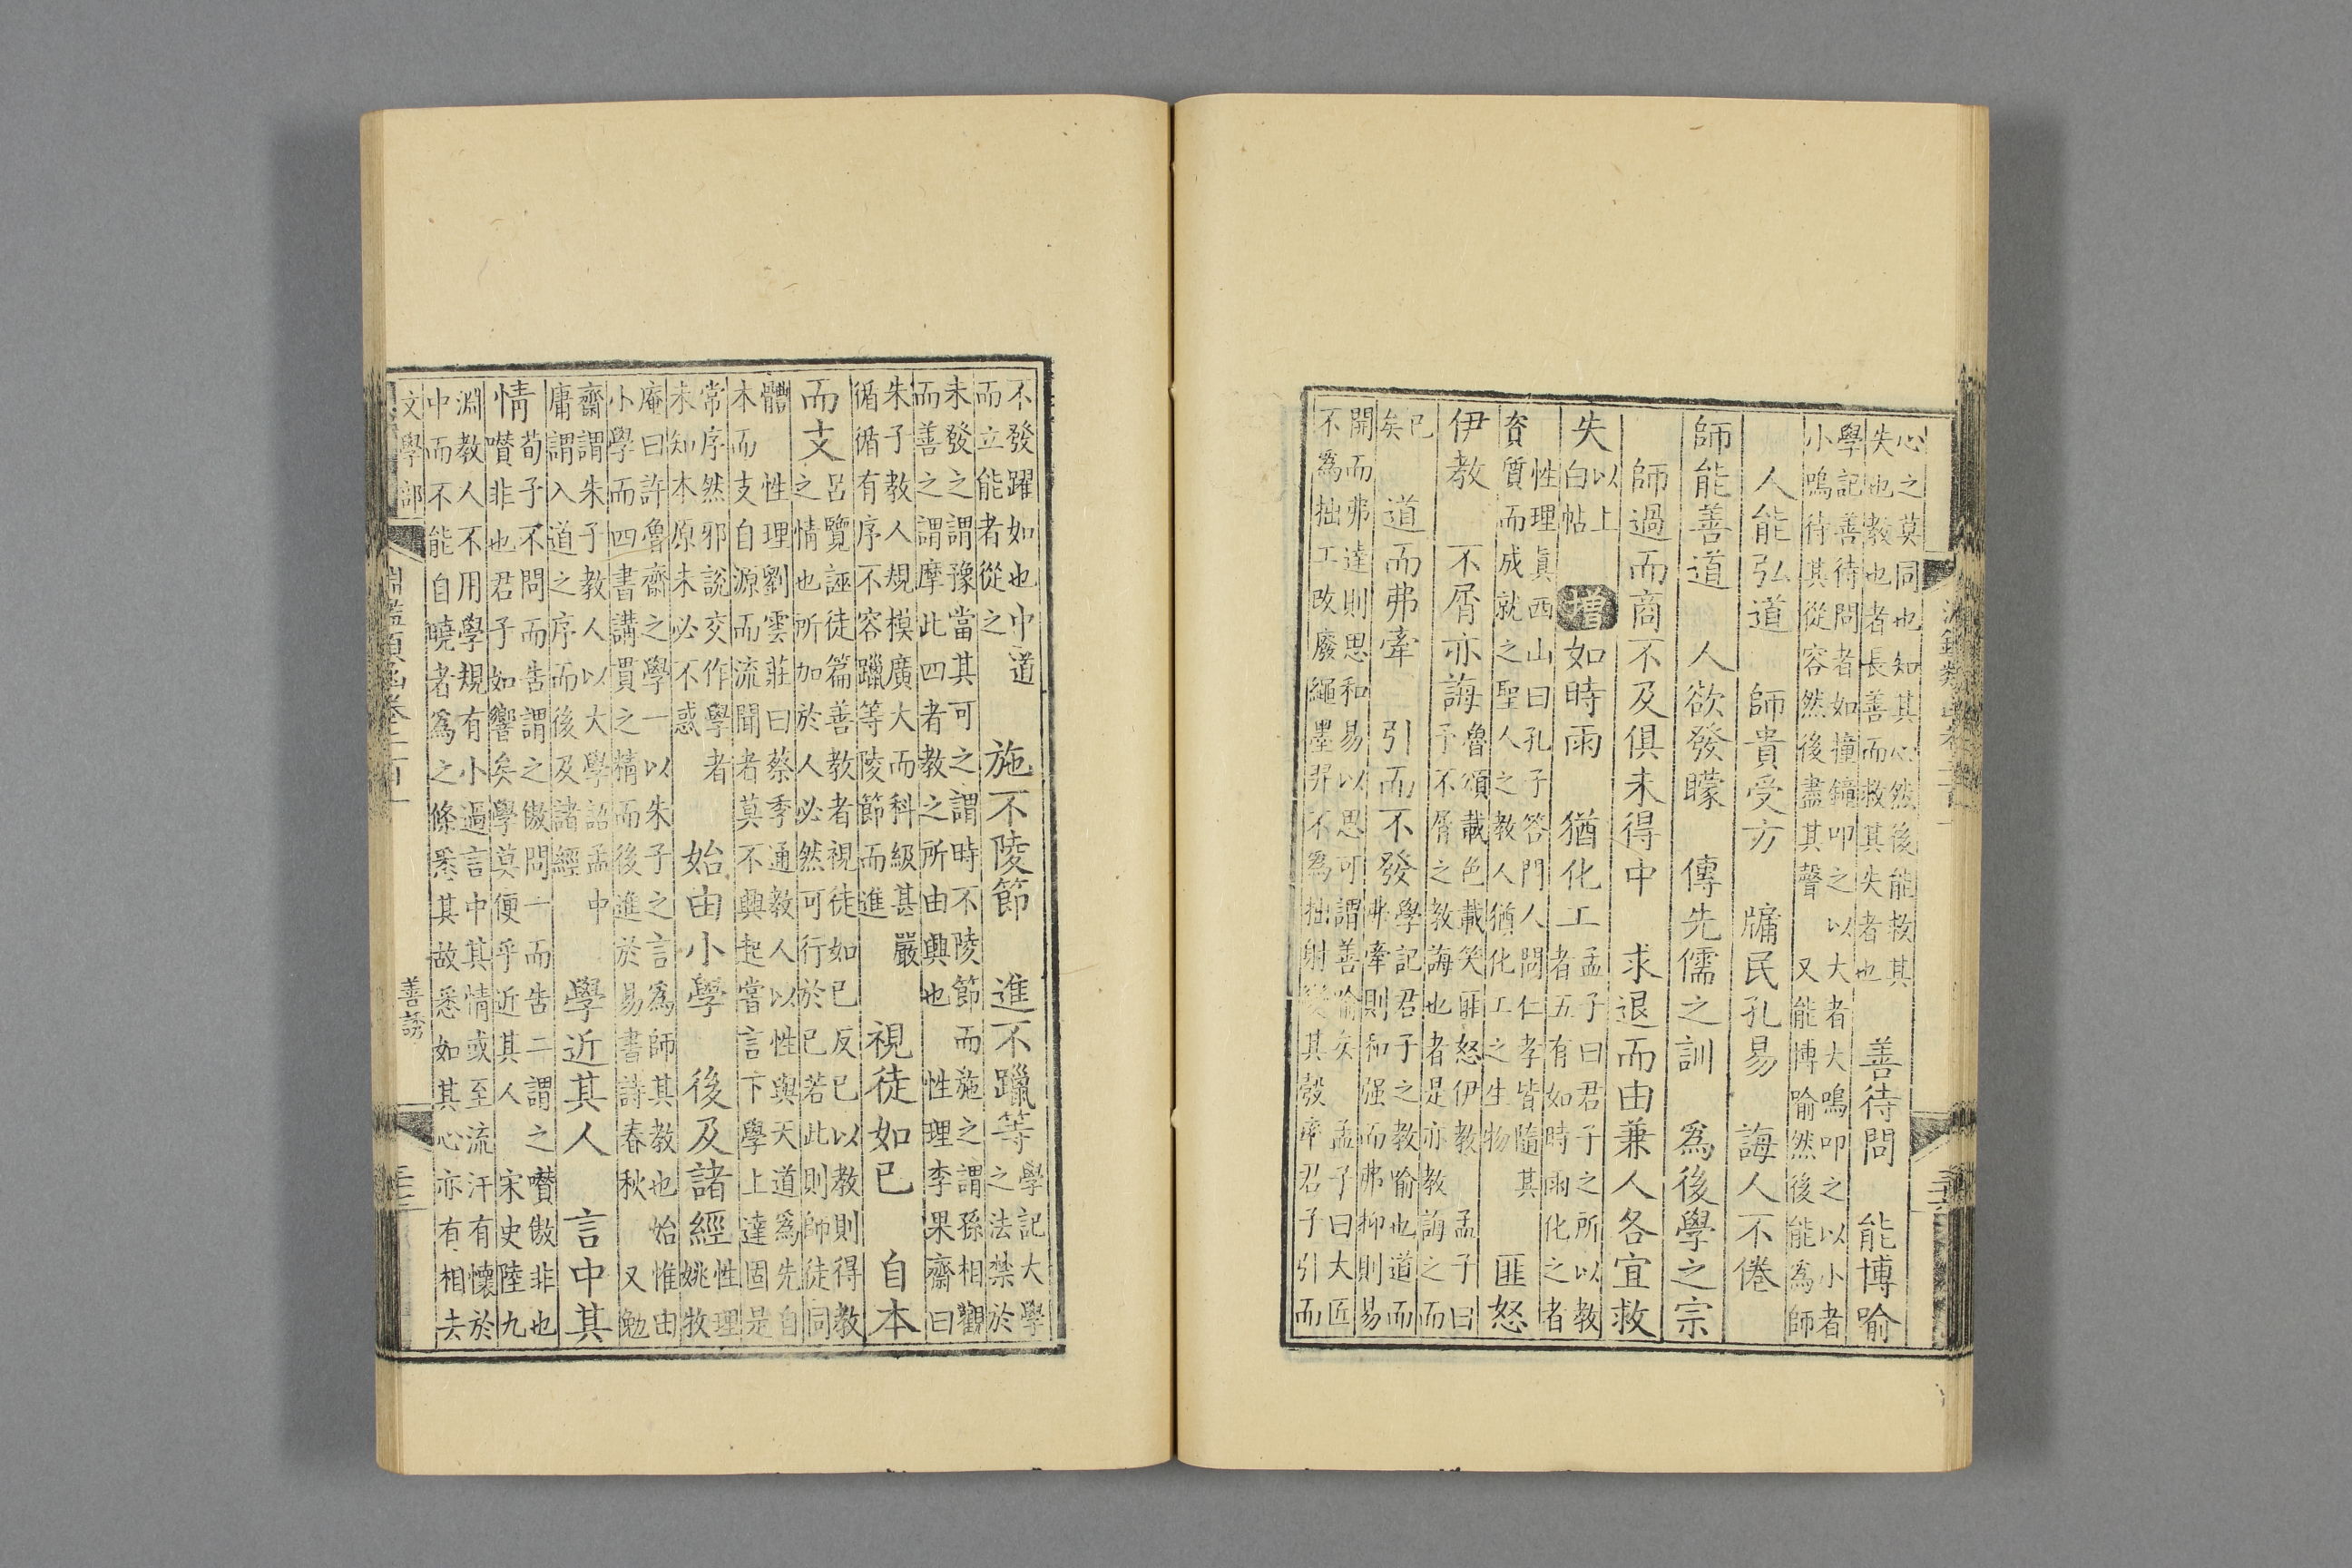 心之莫同也知其心然後能救其
失也教也者長善而救其失者也
善待問　能博喻
學記善待問者如撞鐘叩之以大者大鳴叩之以小者
小鳴待其從容然後盡其聲　又能博喻然後能為師
人能弘道　師貴受方　牖民孔易　誨人不倦
師能善道　人欲發矇　傳先儒之訓　為後學之宗
師過而商不及俱未得中　求退而由兼人各宜救
失
以上
白帖
增如時雨　猶化工
孟子曰君子之所以教
者五有如時雨化之者
性理真西山曰孔子答門人問仁孝皆隨其
資質而成就之聖人之教人猶化工之生物
匪怒
伊教　不屑亦誨
魯頌載色載笑匪怒伊教　孟子曰
予不屑之教誨也者是亦教誨之而
已
矣
道而弗牽　引而不發
學記君子之教喻也道而
弗牽則和强而弗抑則易
開而弗達則思和易以思可謂善喻矣　孟子曰大匠
不為拙工改廢繩墨羿不為拙射變其彀率君子引而
不發躍如也中道
而立能者從之
施不陵節　進不躐等
學記大學
之法禁於
未發之謂豫當其可之謂時不陵節而施之謂孫相觀
而善之謂摩此四者教之所由興也　性理李果齋曰
朱子教人規模廣大而科級甚嚴
循循有序不容躐等陵節而進
視徒如已　自本
而支
呂覽誣徒篇善教者視徒如已反已以教則得教
之情也所加於人必然可行於已若此則師徒同
體　性理劉雲莊曰蔡季通教人以性與天道為先自
本而支自源而流聞者莫不興起嘗言下學上達固是
常序然邪説交作學者
未知本原未必不惑
始由小學　後及諸經
性理
姚牧
庵曰許魯齋之學一以朱子之言為師其教也始惟由
小學而四書講貫之精而後進於易書詩春秋　又勉
齋謂朱子教人以大學語孟中
庸謂入道之序而後及諸經
學近其人　言中其
情
荀子不問而告謂之傲問一而告二謂之囋傲非也
囋非也君子如響矣學莫便乎近其人　宋史陸九
淵教人不用學規有小過言中其情或至流汗有懷於
中而不能自曉者為之條悉其故悉如其心亦有相去
文學部
淵鑑類函卷二百一
善誘